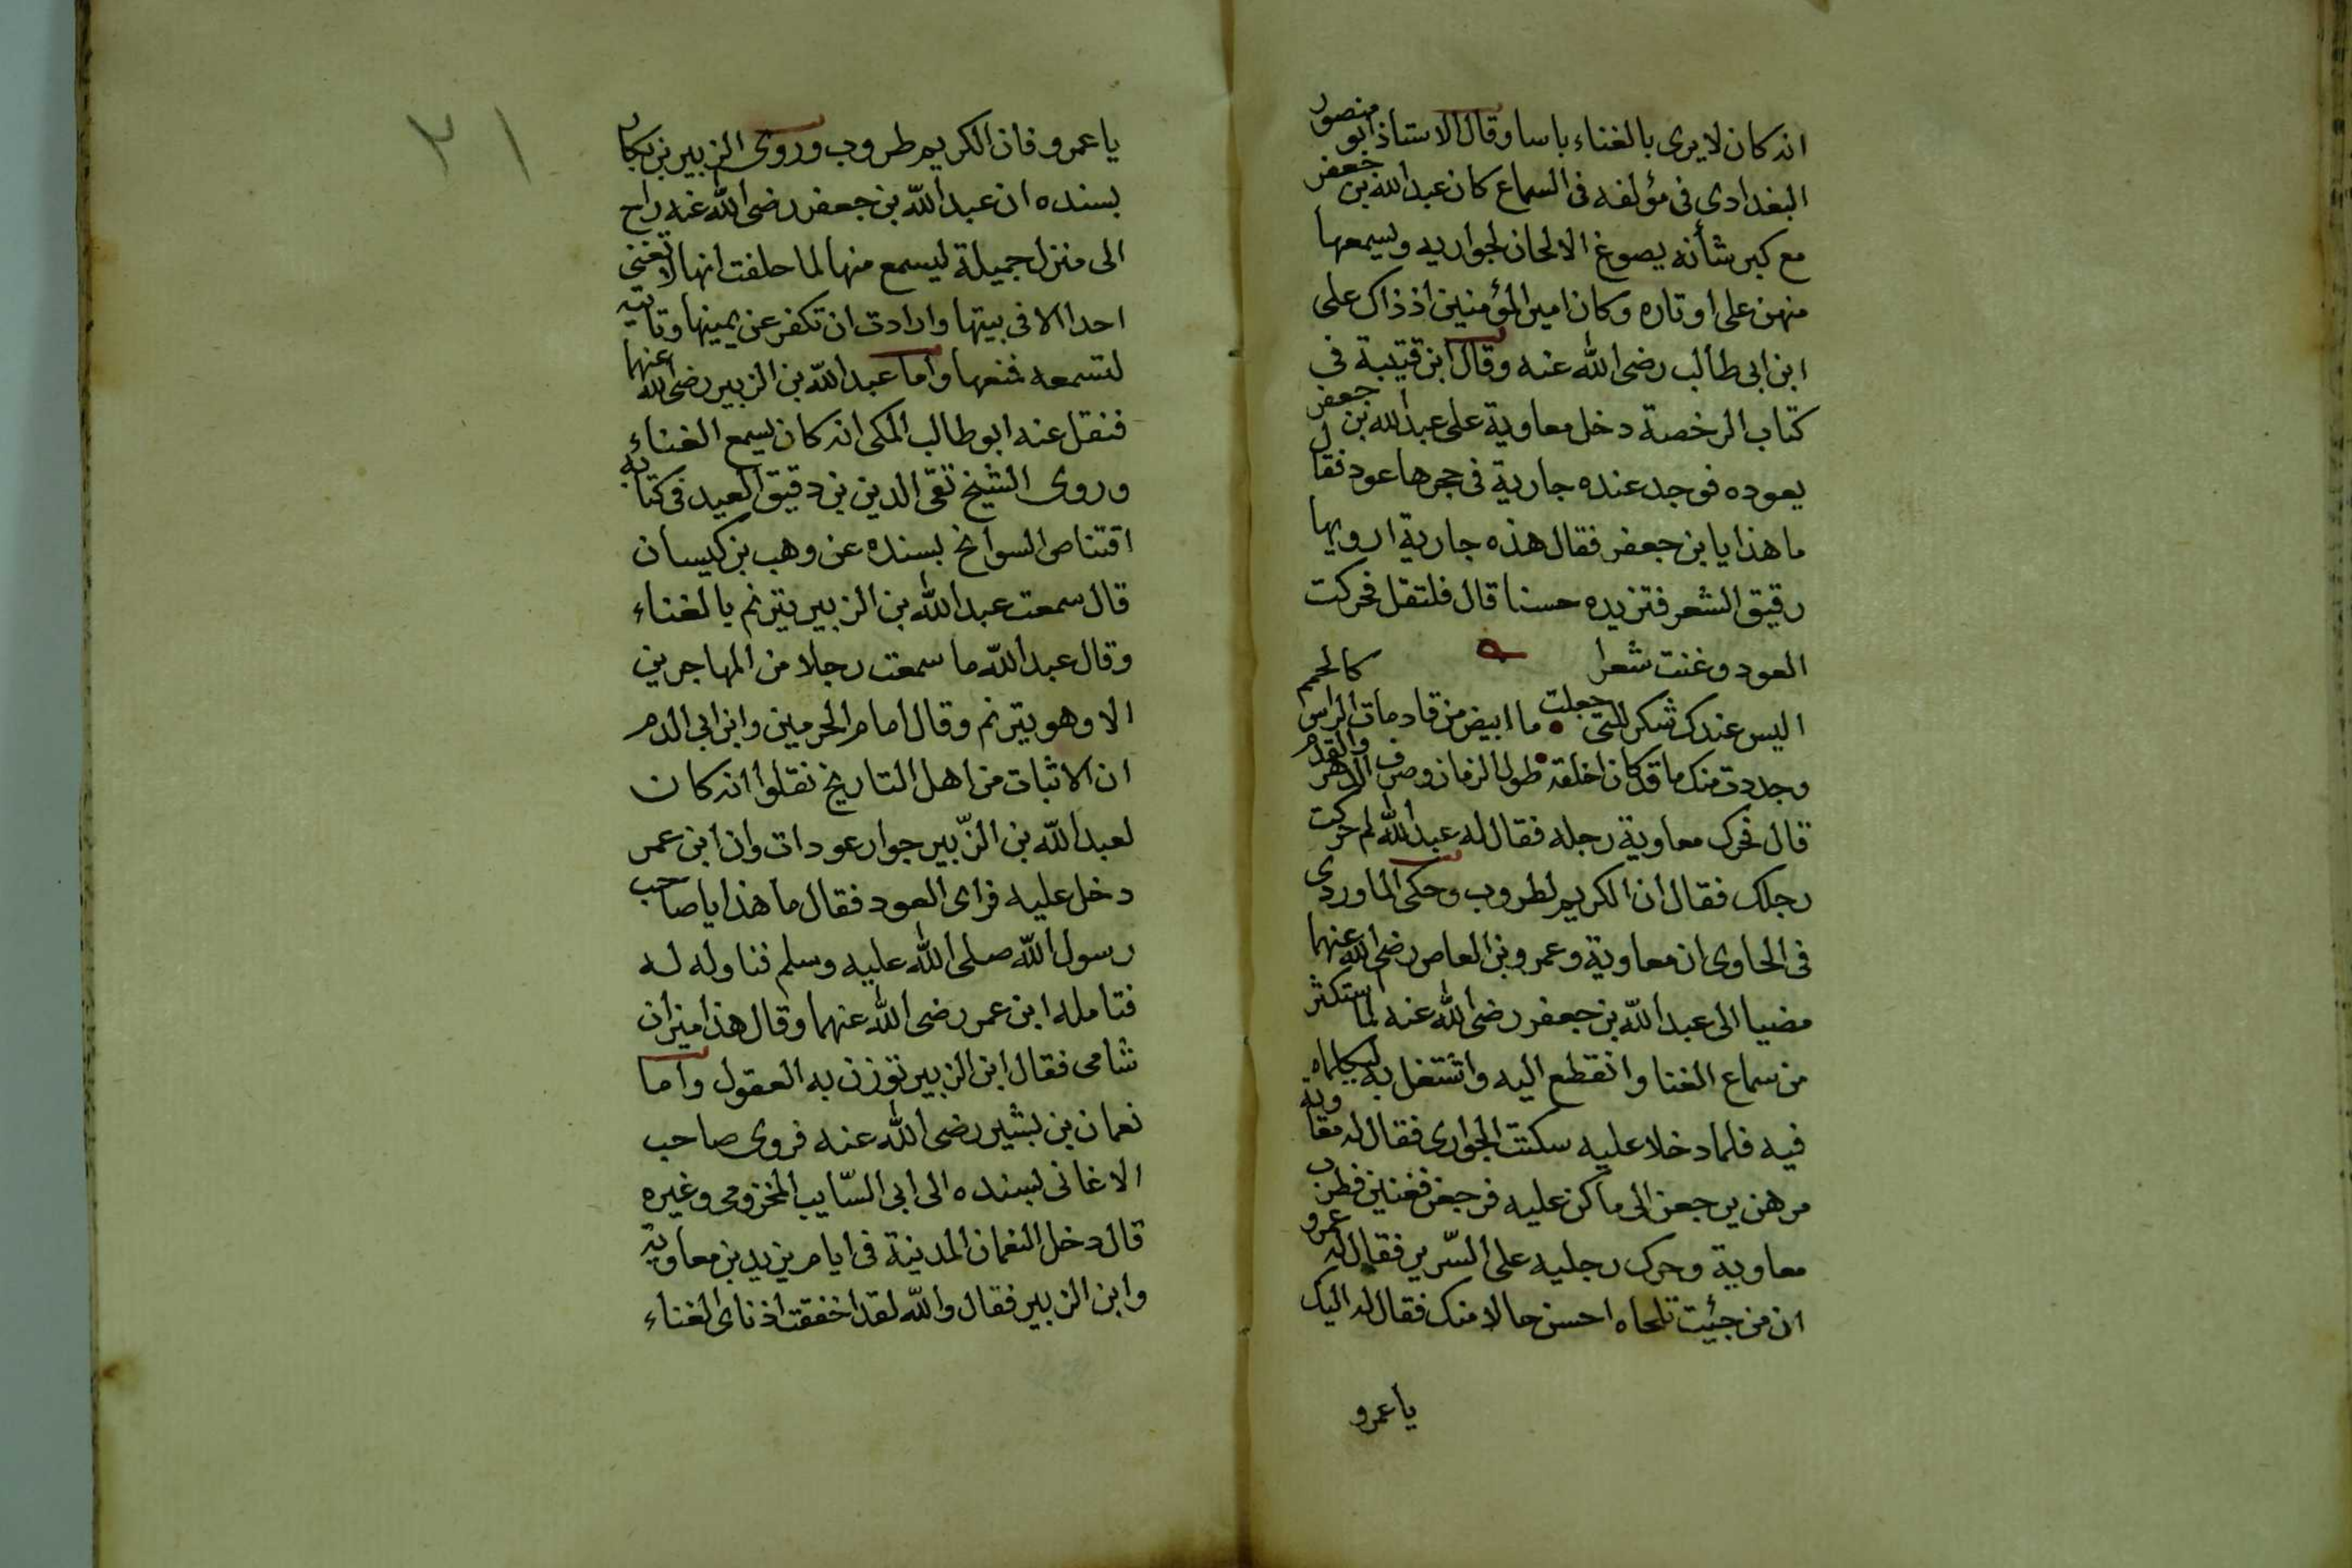 انه كان لا يرى بالغناء باسا وقال الاستاذ ابو منصور
البغدادى فى مؤلفه فى السماع كان عبد الله بن جعفر
مع كبر شأنه يصوغ الالحان لجواريه ويسمعها
منهن على اوتاره وكان امير المؤمنين اذ ذاك على
ابن ابى طالب رضى الله عنه وقال ابن قتيبة فى
كتاب الرخصة دخل معاوية على عبد الله بن جعفر
يعوده فوجد عنده جارية فى حجرها عود فقال
ما هذا يا بن جعفر فقال هذه جارية ارويها
رقيق الشعر فتزيده حسنا قال فلتقل فحركت
العود وغنت شعرا
اليس عندك شكر للتى جعلت ما ابيض من قادمات الراس كالحمم
وجددت منك ما قد كان اخلقه طول الزمان وصرف الدهر والقدم
قال فحرك معاوية رجله فقال له عبد الله لم حركت
رجلك فقال ان الكريم لطروب وحكى الماوردى
فى الحاوى ان معاوية وعمرو بن العاص رضى الله عنهما
مضيا الى عبد الله بن جعفر رضى الله عنه لما ستكثر
من سماع الغنا وانقطع اليه واشتغل به ليكلماه
فيه فلما دخلا عليه سكتت الجوارى فقال له معاوية
مرهن يرجعن الى ما كن عليه فرجعن فغنين فطرب
معاوية وحرك رجليه على السرير فقال له عمرو
ان من جئت تلحاه احسن حالا منك فقال له اليك
يا عمرو
٢١
يا عمرو فان الكريم طروب وروى الزبير بن بكار
بسنده ان عبد الله بن جعفر رضى الله عنه راح
الى منزل جميلة ليسمع منها لما حلفت انها لا تغنى
احدا الا فى بيتها وارادت ان تكفر عن يمينها وتاتيه
لتسمعه فمنعها واما عبد الله بن الزبير رضى الله عنهما
فنقل عنه ابو طالب المكى انه كان يسمع الغناء
وروى الشيخ تقى الدين بن دقيق العيد فى كتابه
اقتناص السوانح بسنده عن وهب بن كيسان
قال سمعت عبد الله بن الزبير يترنم بالغناء
وقال عبد الله ما سمعت رجلا من المهاجرين
الا وهو يترنم وقال امام الحرمين وابن ابى الدم
ان الاثبات من اهل التاريخ نقلوا انه كان
لعبد الله بن الزّبير جوار عودات وان ابن عمر
دخل عليه فراى العود فقال ما هذا يا صاحب
رسول الله صلى الله عليه وسلم فناوله له
فتامله ابن عمر رضى الله عنهما وقال هذا ميزان
شامى فقال ابن الزبير توزن به العقول واما
نعمان بن بشير رضى الله عنه فروى صاحب
الاغانى بسنده الى ابى السّايب المخزومى وغيره
قال دخل النعمان المدينة فى ايام يزيد بن معاوية
وابن الزبير فقال والله لقد اخفقت اذناى الغناء